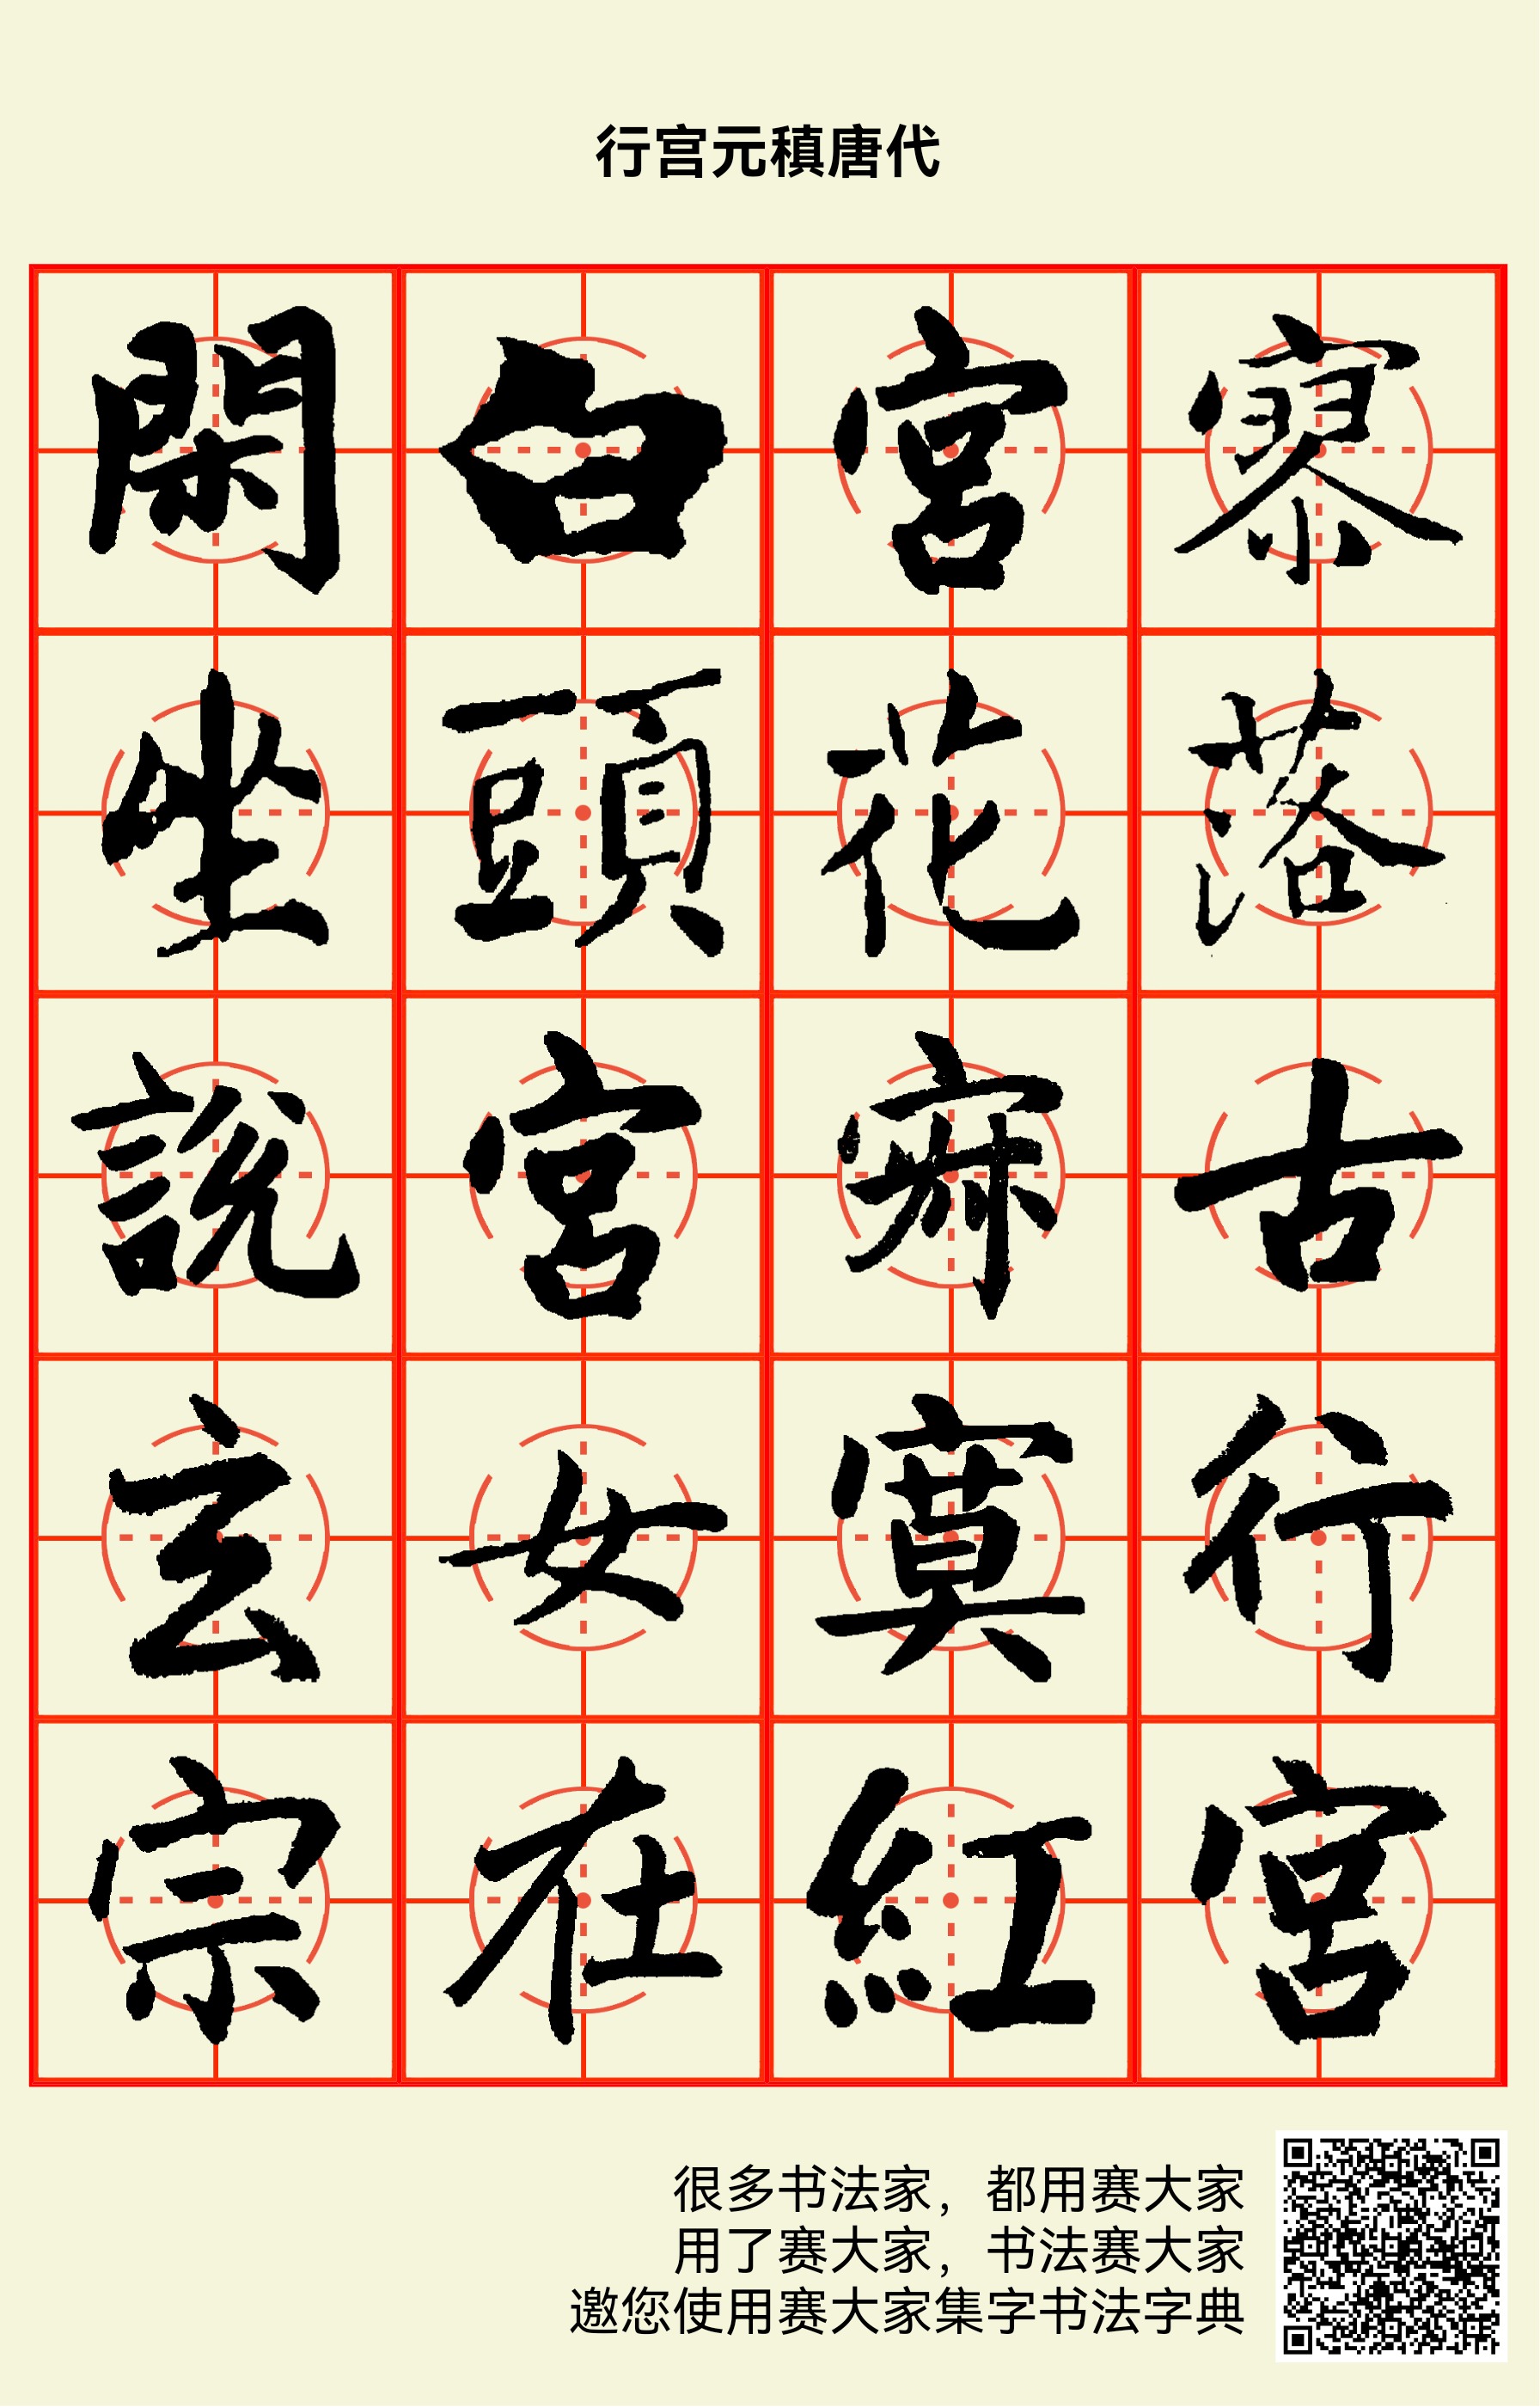 行宫元稹唐代
寥落古行宮
宮花寂寞紅
白頭宮女在
閑坐說玄宗
很多书法家，都用赛大家
用了赛大家，书法赛大家
邀您使用赛大家集字书法字典